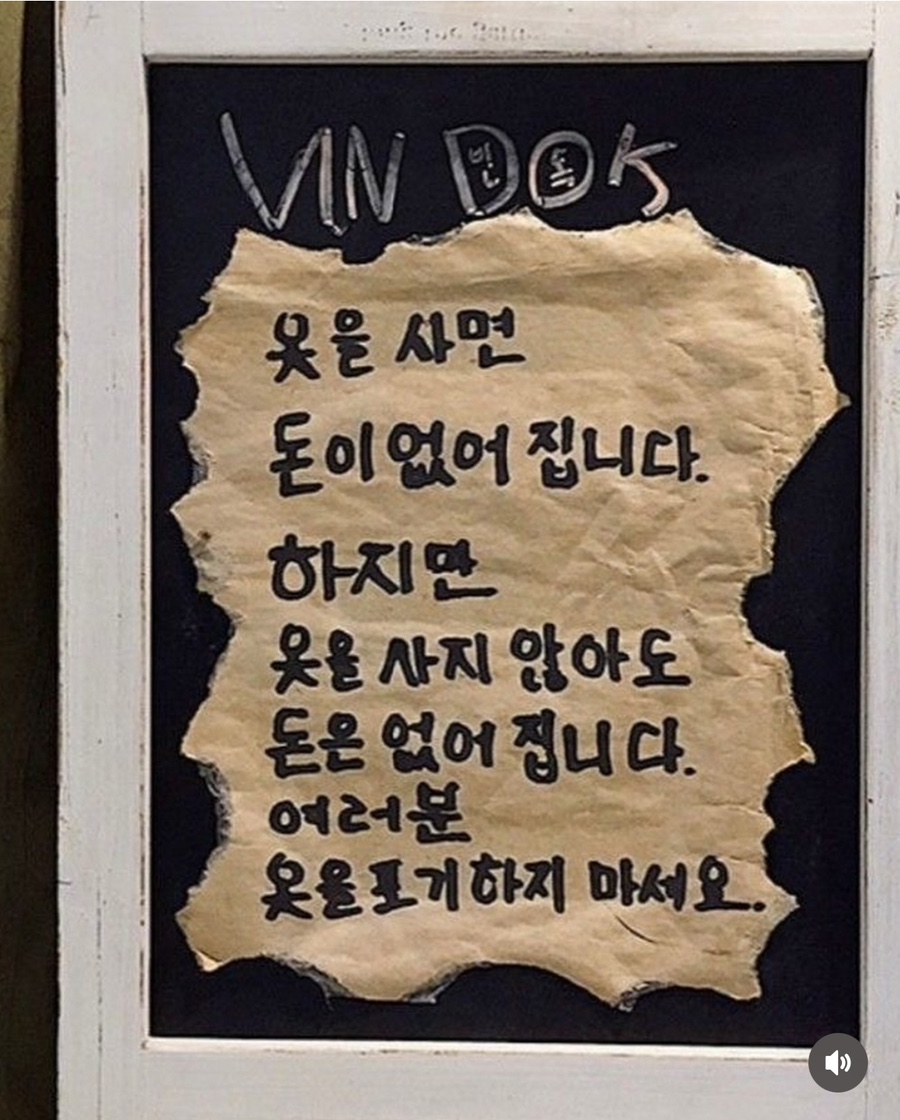 VIN DOK
빈 독
옷을 사면
돈이 없어 집니다.
하지만
옷을 사지 않아도
돈은 없어 집니다.
여러분
옷을 포기하지 마세요.